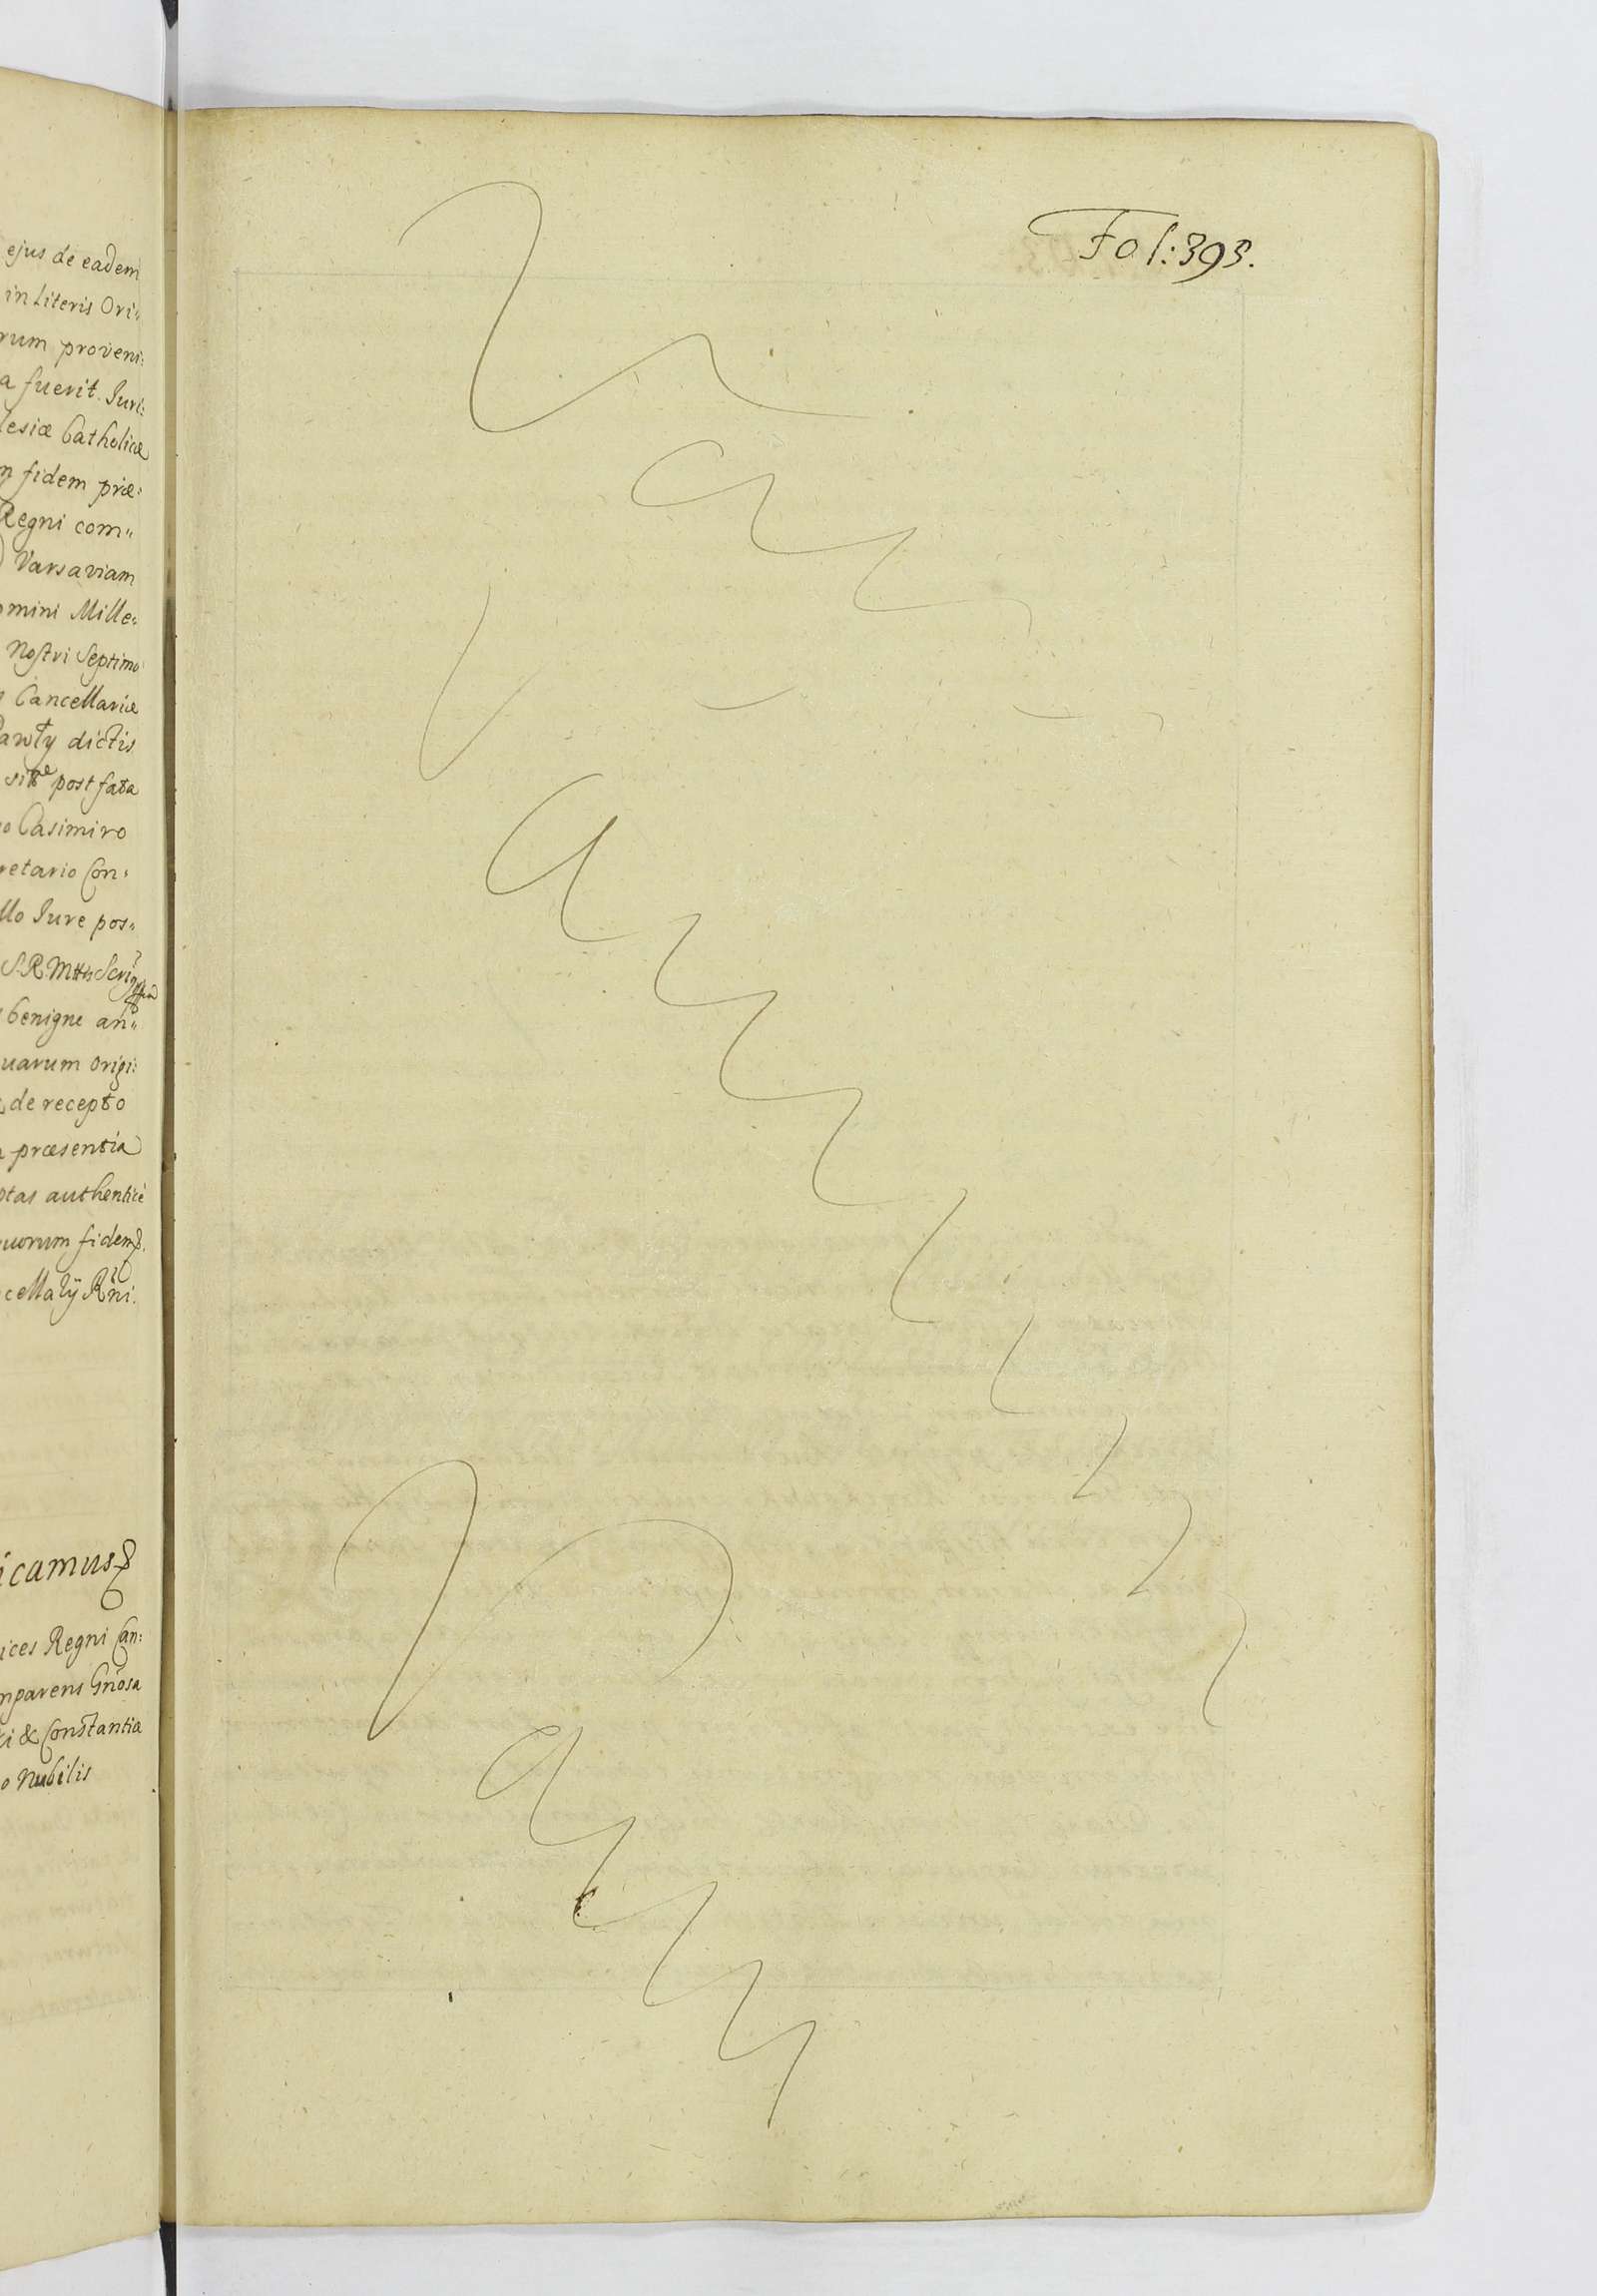 ejus de eadem
in Literis Ori„
rum proveni:
a fuerit. Juri:
lesiæ Catholicæ
n fidem præ:
Regni com„
Varsaviam
omini Mille:
Nostri Septimo
Cancellariæ
dictis
post fata
o Casimiro
retario Con:
llo Jure pos„
S.R.Mttis
benigne an„
uarum origi:
de recepto
præsentia
otas authenticè
uorum fidem
icamus
ices Regni Can:
mparens Gnosa
i & Constantia
o Nubilis
Fol: 393.